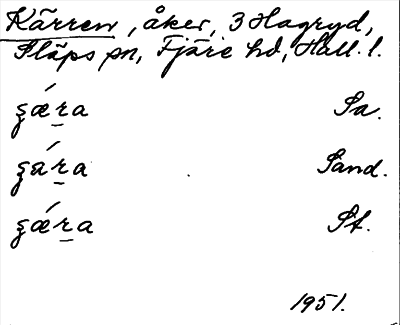 Kärren, åker, 3 Hagryd,
Släps sn, Fjäre hd, Hall. l.
ʂǽra Sa.
ʂára Sand.
ʂǽra St.
1951.